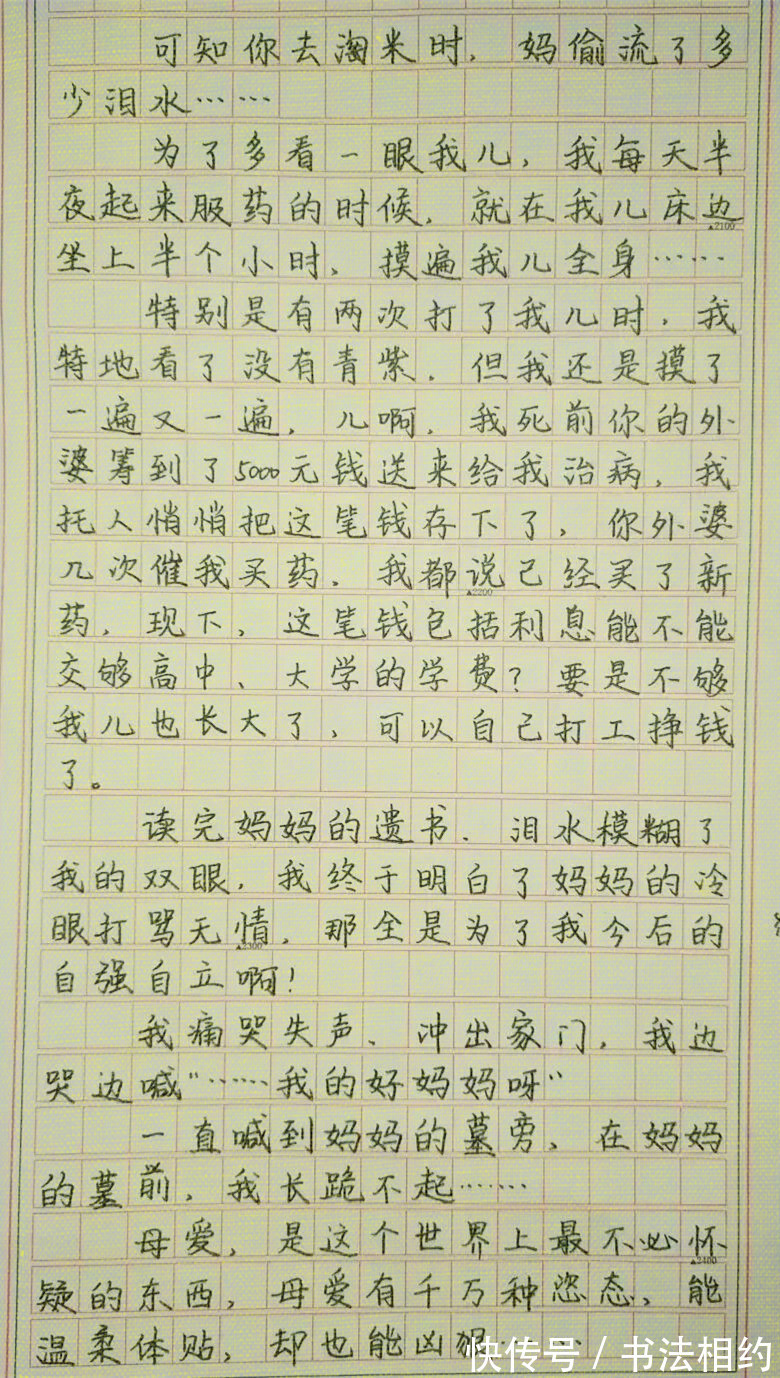 可知你去淘米时，妈偷流了多
少泪水……
为了多看一眼我儿，我每天半
夜起来服药的时候，就在我儿床边
▲2100
坐上半个小时，摸遍我儿全身……
特别是有两次打了我儿时，我
特地看了没有青紫，但我还是摸了
一遍又一遍，儿啊，我死前你的外
婆筹到了5000元钱送来给我治病，我
托人悄悄把这笔钱存下了，你外婆
几次催我买药，我都说己经买了新
▲2200
药，现下，这笔钱包括利息能不能
交够高中、大学的学费？要是不够
我儿也长大了，可以自己打工挣钱
了。
读完妈妈的遗书、泪水模糊了
我的双眼，我终于明白了妈妈的冷
眼打骂无情，那全是为了我今后的
▲2300
自强自立啊！
我痛哭失声、冲出家门，我边
哭边喊“……我的好妈妈呀”
一直喊到妈妈的墓旁、在妈妈
的墓前，我长跪不起……
母爱，是这个世界上最不必怀
▲2400
疑的东西，母爱有千万种姿态，能
温柔体贴，却也能凶狠……
快传号 / 书法相约